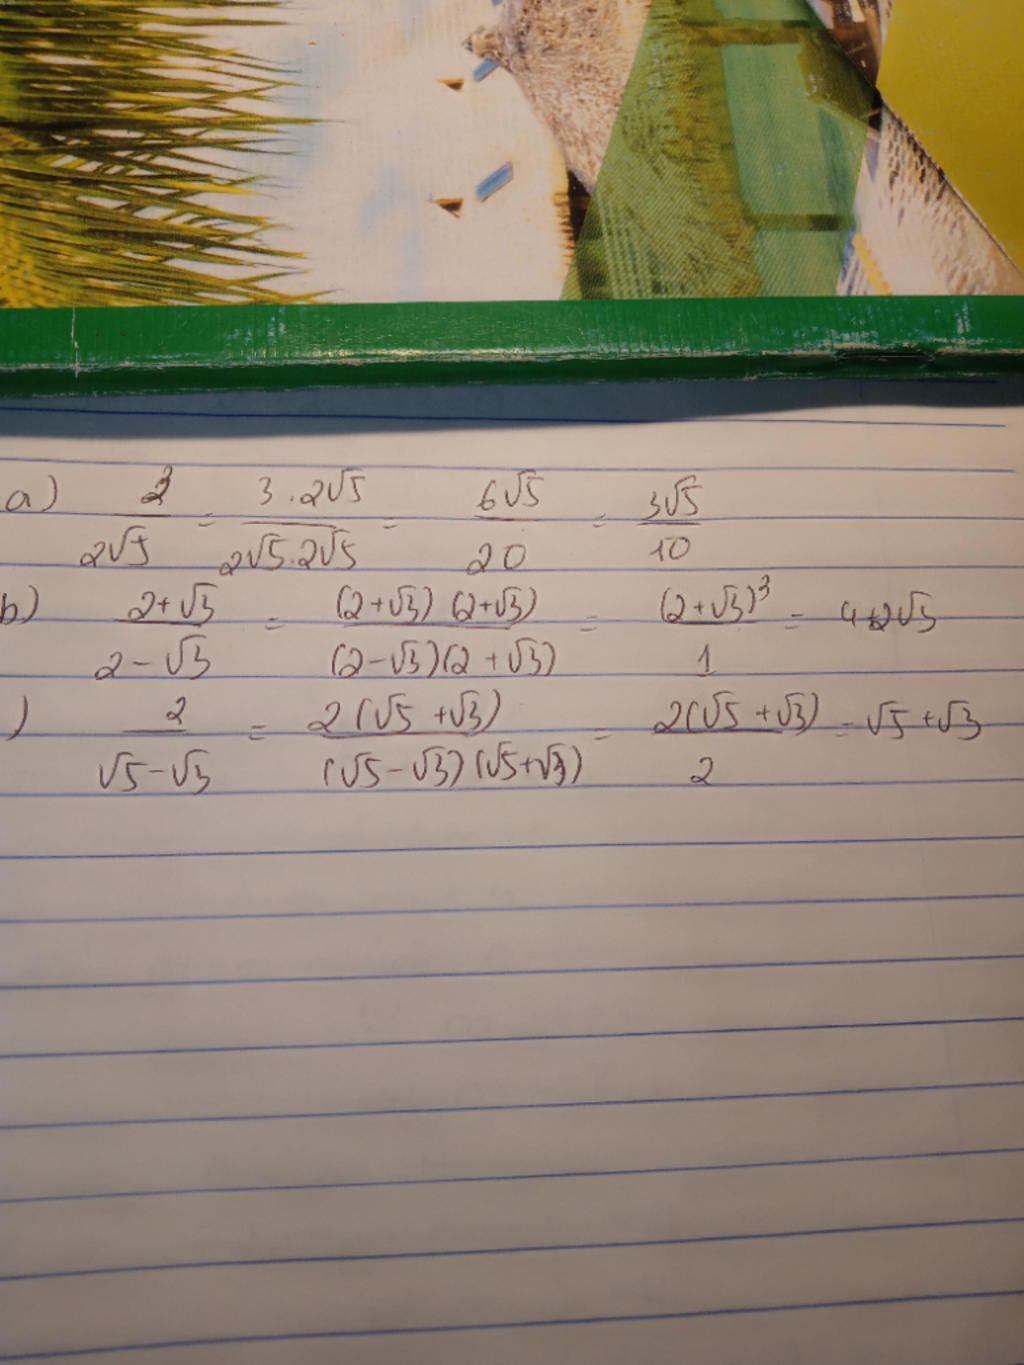 a) 3/2√5 = 3.2√5/2√5.2√5 = 6√5/20 = 3√5/10
b) 2+√3/2-√3 = (2+√3)(2+√3)/(2-√3)(2+√3) = (2+√3)³/1 = 4+2√3
) 2/√5-√3 = 2(√5+√3)/(√5-√3)(√5+√3) = 2(√5+√3)/2 = √5+√3